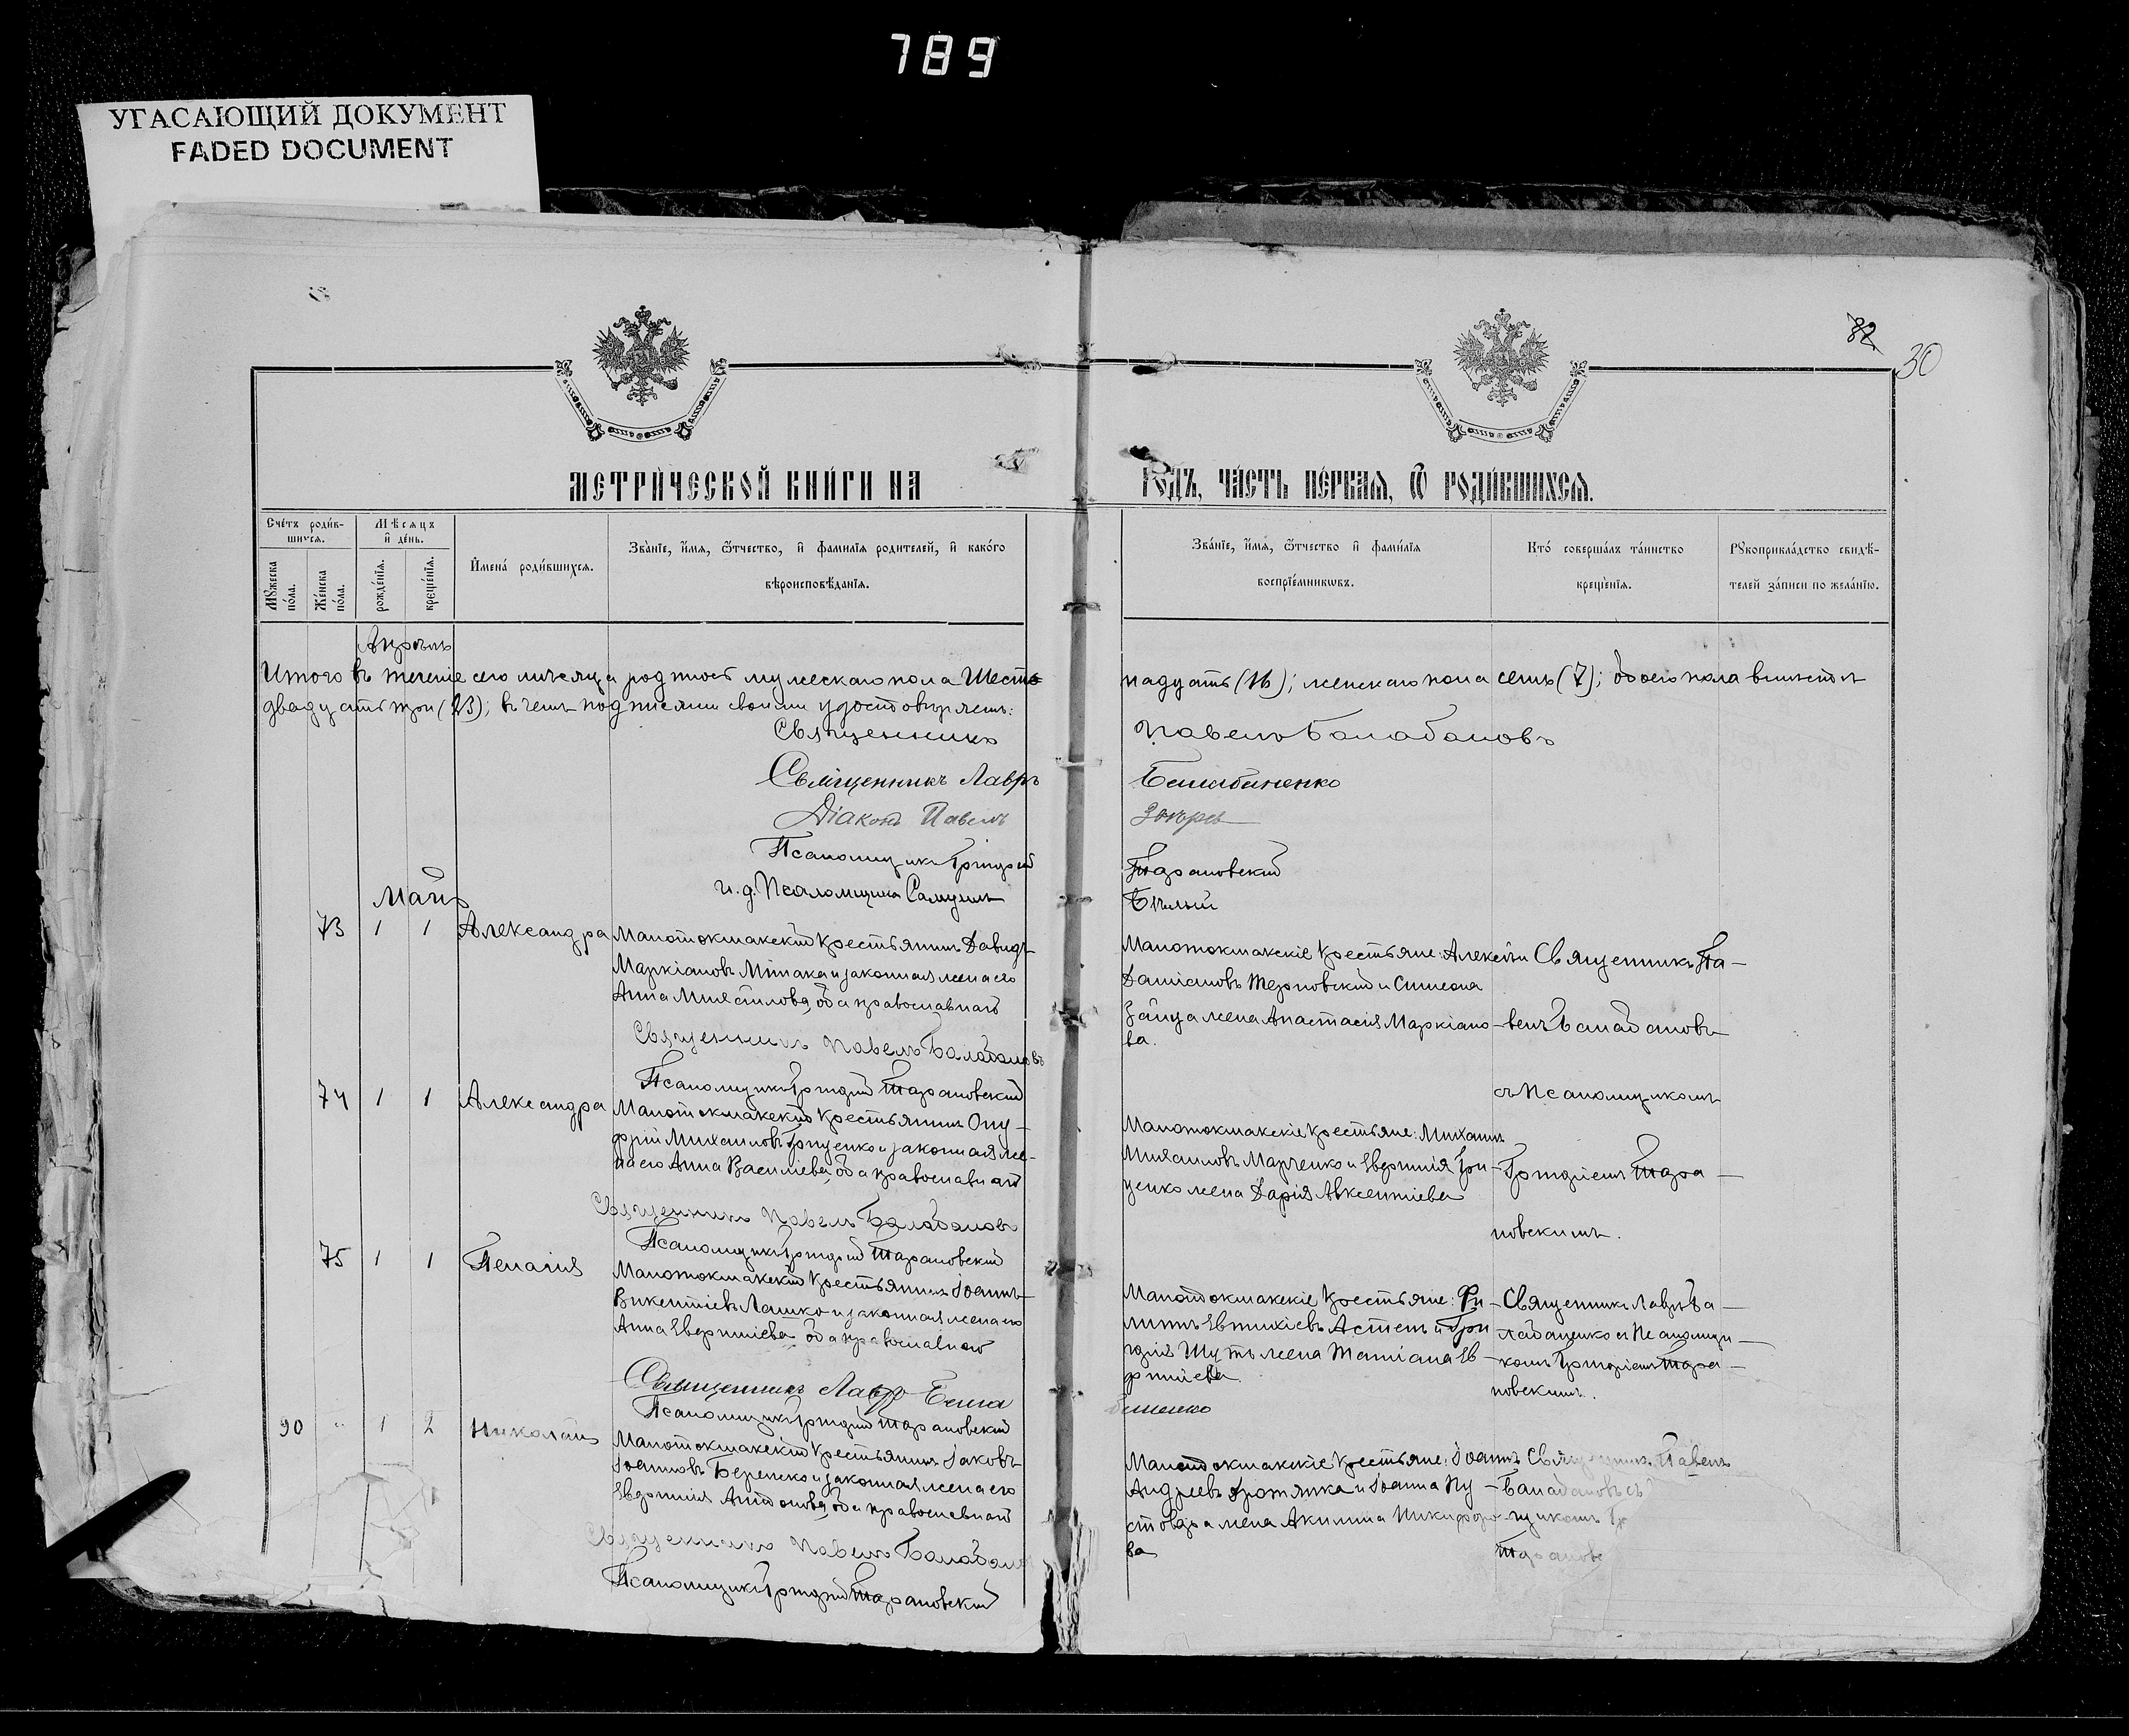 789
УГАСАЮЩИЙ ДОКУМЕНТ
FADED DOCUMENT
82
30
МЕТРИ́ЧЕСКОЙ КНИ́ГИ НА
ГОДЪ, ЧА́СТЬ ПЕ́РВАЯ, Ѿ РОДИ́ВШИХСЯ.
Счетъ роди́в-
шихся.
Мѣсяцъ
и҆ де́нь.
Мꙋжеска
по́ла.
Же́нска
по́ла.
рожде́нїѧ.
креще́нїѧ.
И҆мена́ роди́вшихсѧ.
Зва́нїе, и҆́мѧ, ѻ҆́тчество, и҆ фами́лїѧ родителей, и҆ како́гѡ
вѣроисповѣ́данїѧ.
Зва́нїе, и҆́мѧ, ѻ҆́тчество и҆ фами́лїѧ
воспрїе́мникѡвъ.
Кто́ соверша́лъ та́инство
креще́нїѧ.
Рꙋкоприкла́дство свидѣ́-
телей за́писи по жела́нїю.
Апрѣль
Итого въ теченіе сего мѣсяца родилось мужескаго пола Шест
надцать (16); женскаго пола семь (7); обоего пола вмѣстѣ
двадцать три (23); въ чемъ подписями своими удостовѣряемъ:
Священникъ
Павелъ Балабановъ
Священникъ Лавръ
Балабаненко
Діаконъ Павелъ
Псаломщикъ Григорій
Тарановскій
и. д. Псаломщика Самуилъ
Бѣлый
Май
73 1 1 Александра
Малотокмакскій крестьянинъ Давидъ
Маркіановъ и законная жена его
Анна оба православнаго
Священникъ Павелъ Балабановъ
Псаломщикъ Григорій Тарановскій
Малотокмакскіе крестьяне: Алексѣй
Даміановъ Терновскій и Симеона
Зайца жена Анастасія Маркіано-
ва.
Священникъ Па-
велъ Балабановъ
съ Псаломщикомъ
Григоріемъ Тара-
новскимъ.
74 1 1 Александра
Малотокмакскій крестьянинъ Ону-
фрій Михаиловъ Гриценко и законная же-
на его Анна Василіева, оба православнаго
Священникъ Павелъ Балабановъ
Псаломщикъ Григорій Тарановскій
Малотокмакскіе крестьяне: Михаилъ
Михаиловъ Марченко и Евфимія Гри-
ценко жена Дарія Авксентіева
75 1 1 Пелагія
Малотокмакскій крестьянинъ Іоаннъ
Викентіевъ Лашко и законная жена его
Анна Евфиміева оба православнаго
Священникъ Лавръ Бала
баненко
Псаломщикъ Григорій Тарановскій
Малотокмакскіе крестьяне: Фи-
липпъ Евтихіевъ и Гри-
горія жена Татіана Ев-
фиміева
Священникъ Лавръ Ба-
лабаненко съ Псаломщи-
комъ Григоріемъ Тара-
новскимъ.
90 " 1 2 Николай
Малотокмакскій крестьянинъ Іаковъ
Іоанновъ и законная жена его
Евфимія Антонова, оба православнаго
Священникъ Павелъ Балабанов
Псаломщикъ Григорій Тарановскій
Малотокмакскіе крестьяне: Іоаннъ
Андреевъ и Іоанна Пу-
стовара жена Акилина Никифоро-
ва
Священникъ Павелъ
Балабановъ съ
щикомъ Гр
Таранов